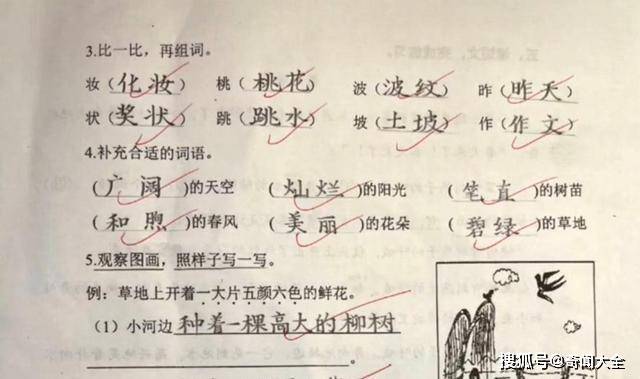 3.比一比，再组词。
妆（化妆） 桃（桃花） 波（波纹） 昨（昨天）
状（奖状） 跳（跳水） 坡（土坡） 作（作文）
4.补充合适的词语。
（广阔）的天空 （灿烂）的阳光 （笔直）的树苗
（和煦）的春风 （美丽）的花朵 （碧绿）的草地
5.观察图画，照样子写一写。
例：草地上开着一大片五颜六色的鲜花。
（1）小河边种着一棵高大的柳树
。
搜狐号@奇闻大全